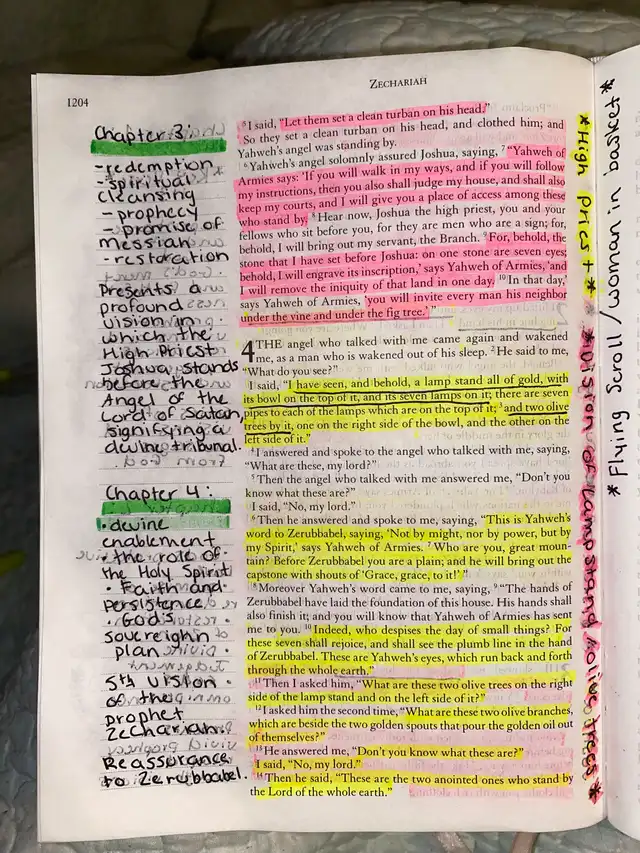 ZECHARIAH
1204
Chapter 3:
-redemption
-spiritual
cleansing
- prophecy
- promise of
messiah
- restoration
Presents a
profound
vision in
which the
High Priest
Joshua stands
before the
Angel of the
Lord of Satan,
signifying a
devine tribunal.
Chapter 4:
• devine
enablement
• the role of
the Holy Spirit
• Faith and
persistence
• God's
sovereighn
plan
5th vision
of the
prophet
Zechariah.
Reassurance
to Zerubbabel.
5 I said, “Let them set a clean turban on his head.”
So they set a clean turban on his head, and clothed him; and
Yahweh’s angel was standing by.
6 Yahweh’s angel solemnly assured Joshua, saying, 7 “Yahweh of
Armies says: ‘If you will walk in my ways, and if you will follow
my instructions, then you also shall judge my house, and shall also
keep my courts, and I will give you a place of access among these
who stand by. 8 Hear now, Joshua the high priest, you and your
fellows who sit before you, for they are men who are a sign; for,
behold, I will bring out my servant, the Branch. 9 For, behold, the
stone that I have set before Joshua: on one stone are seven eyes;
behold, I will engrave its inscription,’ says Yahweh of Armies, ‘and
I will remove the iniquity of that land in one day. 10 In that day,’
says Yahweh of Armies, ‘you will invite every man his neighbor
under the vine and under the fig tree.’ ”
4 THE angel who talked with me came again and wakened
me, as a man who is wakened out of his sleep. 2 He said to me,
“What do you see?”
I said, “I have seen, and behold, a lamp stand all of gold, with
its bowl on the top of it, and its seven lamps on it; there are seven
pipes to each of the lamps which are on the top of it; 3 and two olive
trees by it, one on the right side of the bowl, and the other on the
left side of it.”
4 I answered and spoke to the angel who talked with me, saying,
“What are these, my lord?”
5 Then the angel who talked with me answered me, “Don’t you
know what these are?”
I said, “No, my lord.”
6 Then he answered and spoke to me, saying, “This is Yahweh’s
word to Zerubbabel, saying, ‘Not by might, nor by power, but by
my Spirit,’ says Yahweh of Armies. 7 Who are you, great moun-
tain? Before Zerubbabel you are a plain; and he will bring out the
capstone with shouts of ‘Grace, grace, to it!’ ”
8 Moreover Yahweh’s word came to me, saying, 9 “The hands of
Zerubbabel have laid the foundation of this house. His hands shall
also finish it; and you will know that Yahweh of Armies has sent
me to you. 10 Indeed, who despises the day of small things? For
these seven shall rejoice, and shall see the plumb line in the hand
of Zerubbabel. These are Yahweh’s eyes, which run back and forth
through the whole earth.”
11 Then I asked him, “What are these two olive trees on the right
side of the lamp stand and on the left side of it?”
12 I asked him the second time, “What are these two olive branches,
which are beside the two golden spouts that pour the golden oil out
of themselves?”
13 He answered me, “Don’t you know what these are?”
I said, “No, my lord.”
14 Then he said, “These are the two anointed ones who stand by
the Lord of the whole earth.”
*High priest*
*Vision of lampstand + olive trees*
*Flying Scroll/woman in basket*